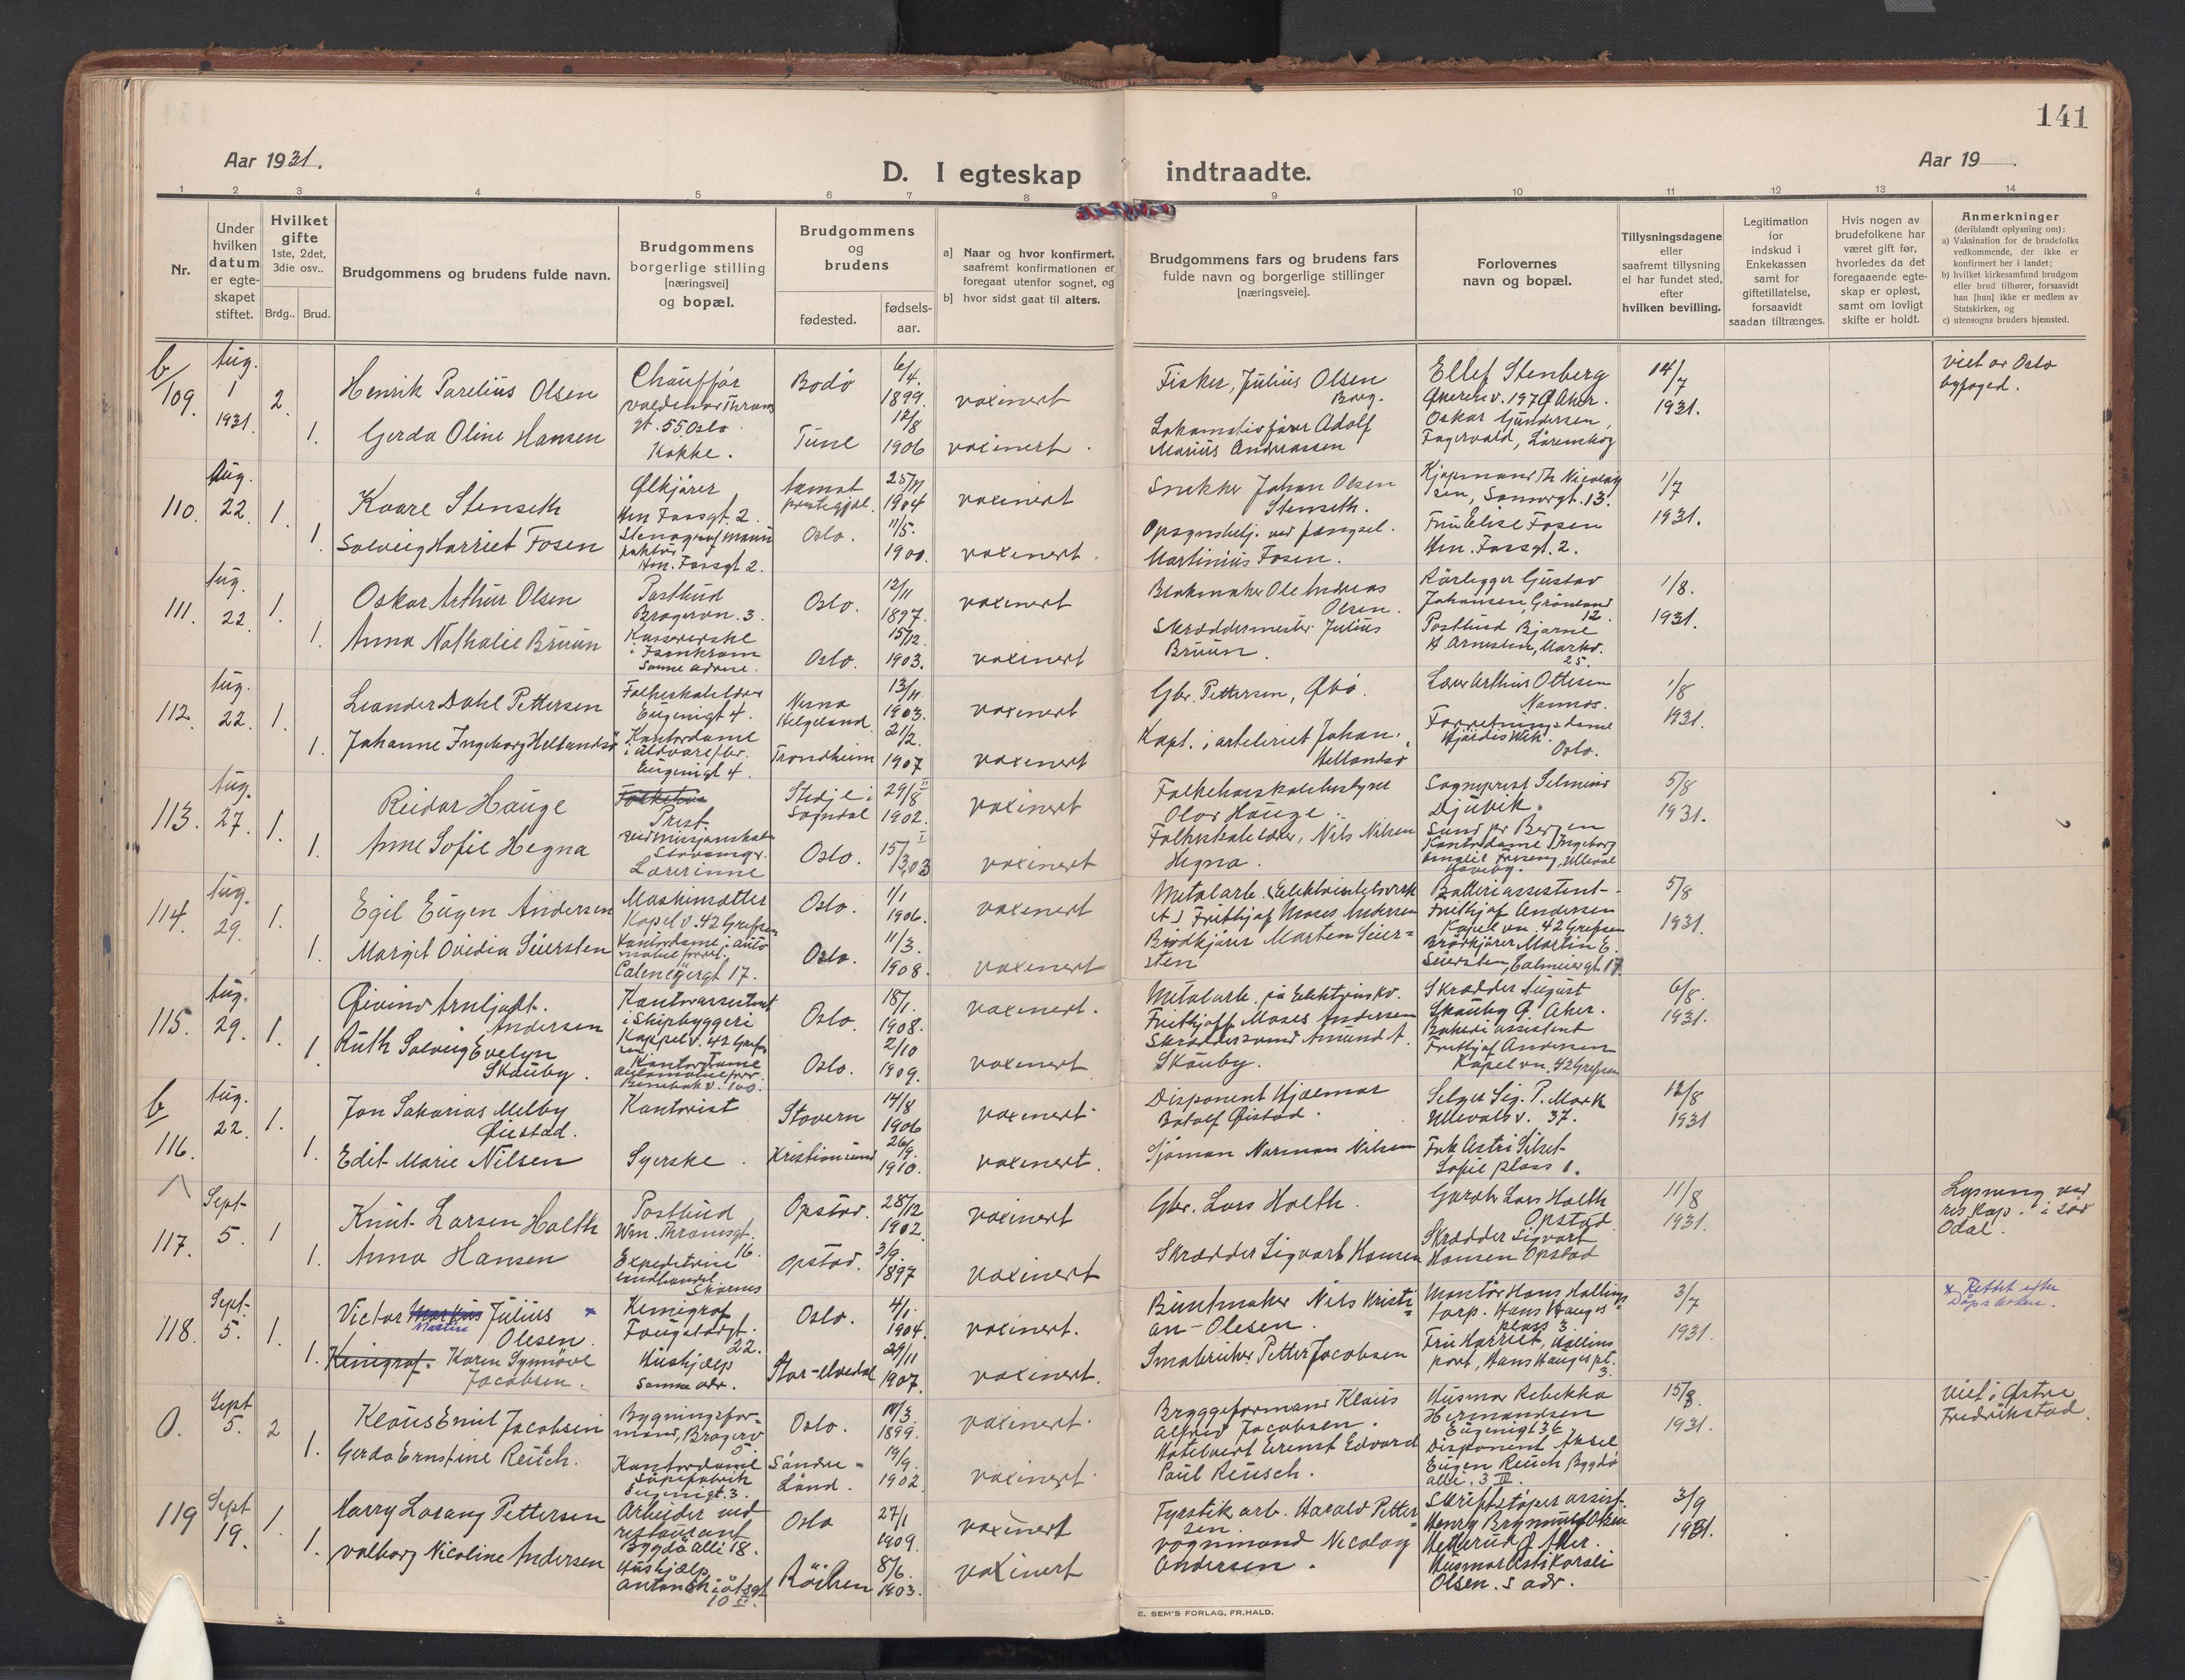 141
Aar 1931.
D. I egteskap indtraadte.
Aar 19
1 2 3 4 5 6 7 8 9 10 11 12 13 14
Nr.
Under hvilken datum er egteskapet stiftet.
Hvilket gifte 1ste, 2det, 3die osv..
Brdg.. Brud.
Brudgommens og brudens fulde navn.
Brudgommens borgerlige stilling [næringsvei] og bopæl.
Brudgommens og brudens
fødested.
fødsels-aar.
a] Naar og hvor konfirmert, saafremt konfirmationen er foregaat utenfor sognet, og
b] hvor sidst gaat til alters.
Brudgommens fars og brudens fars fulde navn og borgerlige stillinger [næringsveie].
Forlovernes navn og bopæl.
Tillysningsdagene eller saafremt tillysning ei har fundet sted, efter hvilken bevilling.
Legitimation for indskud i Enkekassen samt for giftetillatelse, forsaavidt saadan tiltrænges.
Hvis nogen av brudefolkene har været gift før, hvorledes da det foregaaende egteskap er opløst, samt om lovligt skifte er holdt.
Anmerkninger (deriblandt oplysning om):
a) Vaksination for de brudefolks vedkommende, der ikke er konfirmert her i landet;
b) hvilket kirkesamfund brudgom eller brud tilhører, forsaavidt han [hun] ikke er medlem av Statskirken, og
c) utensogns bruders hjemsted.
b/109. Aug. 1 1931. 2.
Henrik Parelius Olsen
Chauffør
gt. 55 Oslo
Bodø
6/4. 1899.
vaxinert
Fisker, Julius Olsen
Ellef Stenberg
14/7 1931.
viet av Oslo byfoged.
1. Gerda Oline Hansen
Kokke.
Tune
12/8 1906
vaxinert.
Lokomotivfører Adolf Marius Andreassen
Oskar Gundersen,
Fagervold, Lørenskog
110. Aug. 22. 1.
Kaare Stenseth
Ølkjører
Hm. Fossgt. 2.
Aamot prestegjel.
25/11 1904
vaxinert
Snekker Johan Olsen Stenseth.
Sannergt. 13.
1/7 1931.
1. Solveig Harriet Fosen
Hm. Fossgt 2.
Oslo.
11/5. 1900.
vaxinert.
Martinius Fosen.
Fru Elise Fosen
Hm. Fossgt. 2.
111. Aug. 22. 1.
Oskar Arthur Olsen
Postbud
Oslo.
12/11 1897.
vaxinert
Blokmaker Ole Andreas Olsen.
Rørlegger Gustav Johansen, Grønland 12.
1/8. 1931.
1. Anna Nathalie Bruun
Kassererske
i Isenkram
Samme adresse.
Oslo.
15/12. 1903.
vaxinert
Skræddermester Julius Bruun.
Postbud Bjarne
25.
112. Aug. 22. 1.
Leander Dahl Pettersen
Folkeskolelærer
Eugenigt 4.
Nesna Helgeland.
13/11 1903.
vaxinert
Gbr. Pettersen,
Lærer Arthur Ottesen
Namsos.
1/8 1931.
1. Johanne Ingeborg Hellandsjø
Kontordame
Eugenigt 4.
Trondheim
21/2. 1907
vaxinert
Kapt. i arteleriet Johan Hellandsø
Forretningsdame
Oslo.
113. Aug. 27. 1.
Reidar Hauge
Prest
Stedje i Sogndal
29/8 1902.
vaxinert
Folkehøiskolebestyrer
Olav Hauge
Sogneprest Selmius Djuvik.
Sund pr Bergen
5/8 1931.
1. Anne Sofie Hegna
Lærerinne
Oslo.
15/3.03
vaxinert
Folkeskolelærer, Nils Nilsen Hegna.
Kontordame Ingeborg
Ulleval Haveby.
114. Aug. 29. 1.
Egil Eugen Andersen
Maskinsetter
Kapel v. 42 Grefsen
Oslo.
1/1 1906.
vaxinert
Metalarb.
Frithjof Moses Andersen
Batteriassistent
Frithjof Andersen
Kapel vn. 42 Grefsen
5/8 1931.
1. Margit Ovidia Seiersten
Kontordame i auto
Calmeyergt 17.
Oslo.
11/3. 1908.
vaxinert
Brødkjører Marten Seiersten
Brødkjører Martin E.
Seiersten, Calmeiergt 17
115. Aug. 29. 1.
Øivind Arnljot Andersen
Kontorassistent
i Skipbyggeri
Kappel v. 42 Grefsen
Oslo.
18/1. 1908.
vaxinert.
Metalarb. på
Frithjoff Moses Andersen
Skrædder August
Skauby Ø. Aker.
6/8. 1931.
1. Ruth Solveig Evelyn Skauby.
Kontordame
Oslo.
2/10 1909.
vaxinert
Skræddersvend Amund A. Skauby.
Frithjof Andersen
Kapel vn. 42 Grefsen
b 116. Aug. 22. 1.
Jon Sakarias Melby Øiestad.
Kontorist
Stavern
14/8 1906
vaxinert.
Disponent Hjalmar
Selger Sig. P. Mork
Ullevalsv. 37.
12/8 1931
1. Edit Marie Nilsen
Syerske.
Kristiansund
26/9. 1910.
vaxinert.
Sjøman Norman Nilsen
Frk Astri
Sofie plass 1.
117. Sept 5. 1
Knut Larsen Holth
Postbud
Wm. Thranesgt. 16.
Opstad.
28/12 1902
vaxinert
Gbr. Lars Holth.
Gardbr Lars Holth
Opstad
11/8 1931.
Lysning ved
i Sør Odal.
1. Anna Hansen
Expeditrise
landhandel
Skarnes
Opstad.
3/9. 1897
vaxinert
Skrædder Sigvart Hansen
Skrædder Sigvart
Hansen Opstad
118. Sept. 5. 1.
Victor Markus Martin Julius Olesen.
Kemigraf
22.
Oslo.
4/1. 1904.
vaxinert.
Buntmaker Nils Kristian Olesen.
Montør Hans
Hans Hauges plass 3.
3/7 1931.
x Rettet efter Dåpsboken.
1. Kemigraf. Karen Synnøve Jacobsen.
Hushjelp
Samme adr.
Stor-Elvedal
29/11 1907.
vaxinert.
Smabruker Petter Jacobsen
Fru Harriet
Hans Hauges pl. 3.
0. Sept 5. 2
Klaus Emil Jacobsen
Bygningsformand, 5.
Oslo.
14/3. 1899.
vaxinert.
Bryggeformand Klaus
Alfred Jacobsen.
Husmor Rebekka
Hermandsen
Eugenigt 36
15/8. 1931.
viet i Østre Fredrikstad.
1. Gerda Ernstine Reusch.
Kontordame
Såpefabrik
Eugenigt. 3.
Søndre Land.
19/9. 1902
vaxinert.
Hotelvert Ernst Edvard
Paul Reusch.
Disponent Aksel
Eugen Reusch Bygdø
alle. 3 IV.
119 Sept 19. 1.
Harry Lorang Pettersen
Arbeider ved
restaurant
Bygdø alle 18.
Oslo
27/1 1909.
vaxinert
Fyrstik arb. Harald Pettersen.
3/9 1931.
1. Valborg Nicoline Andersen
Hushjelp
10 II.
8/6. 1903.
vaxinert
Vognmand Nicolay
Andersen.
Olsen. s adr.
E. SEM'S FORLAG, FR.HALD.